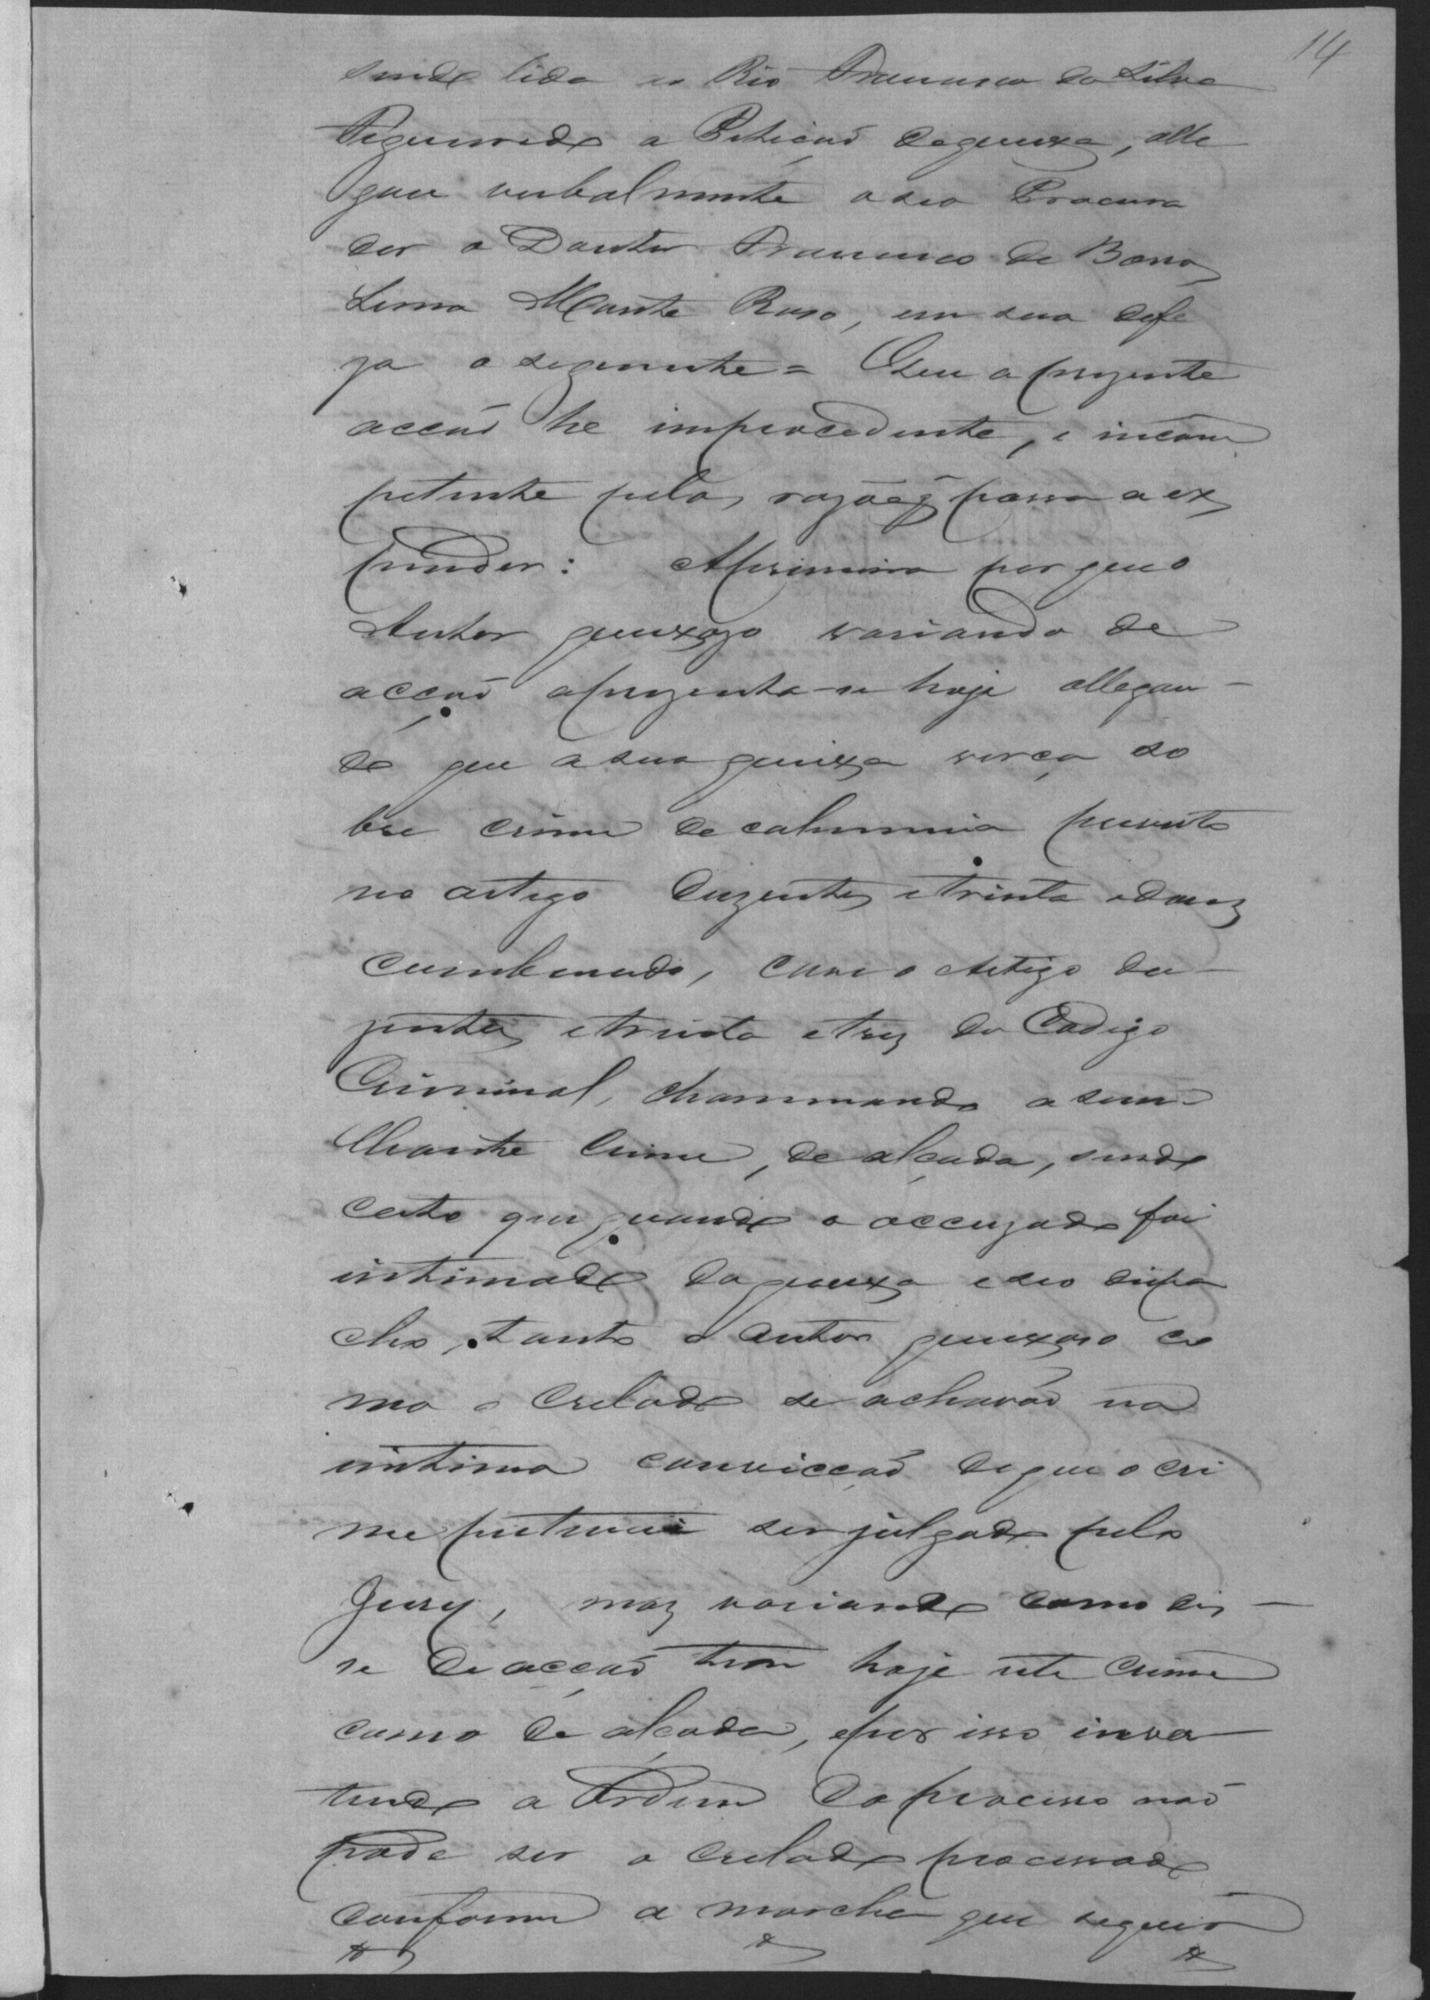 14
sendo lida ao Réo Francisco da Silva
Figueiredo a Petição dequeixa, alle
gou verbalmente o seo Procura
dor o Doutor Francisco de Barros
Lima Monte Raso, em sua defe
za o seguinte = Que a prezente
acção he improcedente, e incom
petente pelas razões passa a ex
pender: Aprimeira por que o
Autor queixozo variando de
acção aprezenta-se hoje allegan-
do que a sua queixa verça so
bre crime de calumnia previsto
no artigo duzentos etrinta edous
combinado, com o Artigo du-
zentos etrinta etres do Codigo
Criminal, chammando a seme-
lhante crime, de alçada, sendo
certo que quando o accuzado foi
intimado daqueixa eseo dispa
cho, tanto o autor queixoso co
mo o crelado se achavão na
intima convicção de que o cri
me pertencia ser julgado pelo
Jury, maz variando como dis-
se de acção tem hoje este crime
como de alçada, epor isso inver-
tendo a Ordem do processo não
pode ser o crelado processado
conforme a marcha que seguio